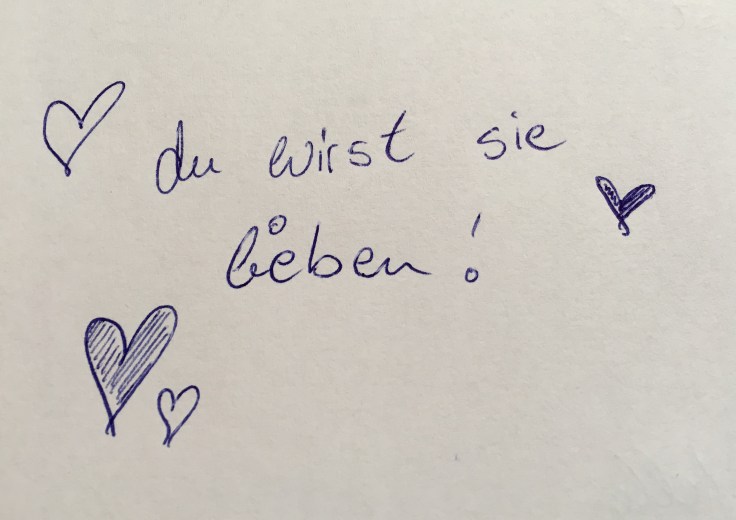 du wirst sie
lieben!